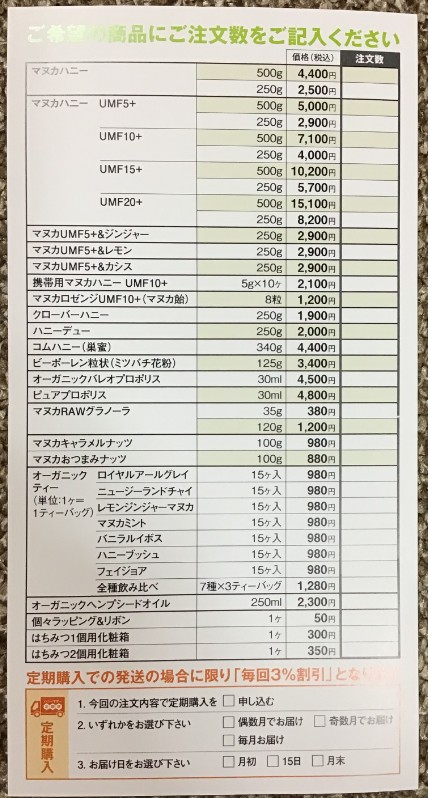 ご希望の商品にご注文数をご記入ください
価格(税込) 注文数
マヌカハニー 500g 4,400円
250g 2,500円
マヌカハニー UMF5+ 500g 5,000円
250g 2,900円
UMF10+ 500g 7,100円
250g 4,000円
UMF15+ 500g 10,200円
250g 5,700円
UMF20+ 500g 15,100円
250g 8,200円
マヌカUMF5+&ジンジャー 250g 2,900円
マヌカUMF5+&レモン 250g 2,900円
マヌカUMF5+&カシス 250g 2,900円
携帯用マヌカハニー UMF10+ 5g×10ヶ 2,100円
マヌカロゼンジUMF10+(マヌカ飴) 8粒 1,200円
クローバーハニー 250g 1,900円
ハニーデュー 250g 2,000円
コムハニー(巣蜜) 340g 4,400円
ビーポーレン粒状(ミツバチ花粉) 125g 3,400円
オーガニックバレオプロポリス 30ml 4,500円
ピュアプロポリス 30ml 4,800円
マヌカRAWグラノーラ 35g 380円
120g 1,200円
マヌカキャラメルナッツ 100g 980円
マヌカおつまみナッツ 100g 880円
オーガニック ロイヤルアールグレイ 15ヶ入 980円
ティー ニュージーランドチャイ 15ヶ入 980円
(単位:1ヶ= レモンジンジャーマヌカ 15ヶ入 980円
1ティーバッグ) マヌカミント 15ヶ入 980円
バニラルイボス 15ヶ入 980円
ハニーブッシュ 15ヶ入 980円
フェイジョア 15ヶ入 980円
全種飲み比べ 7種×3ティーバッグ 1,280円
オーガニックヘンプシードオイル 250ml 2,300円
個々ラッピング&リボン 1ヶ 50円
はちみつ1個用化粧箱 1ヶ 300円
はちみつ2個用化粧箱 1ヶ 350円
定期購入での発送の場合に限り「毎回3%割引」とな
定期購入
1. 今回の注文内容で定期購入を □ 申し込む
2. いずれかをお選び下さい □ 偶数月でお届け □ 奇数月でお届け
□ 毎月お届け
3. お届け日をお選び下さい □ 月初 □ 15日 □ 月末